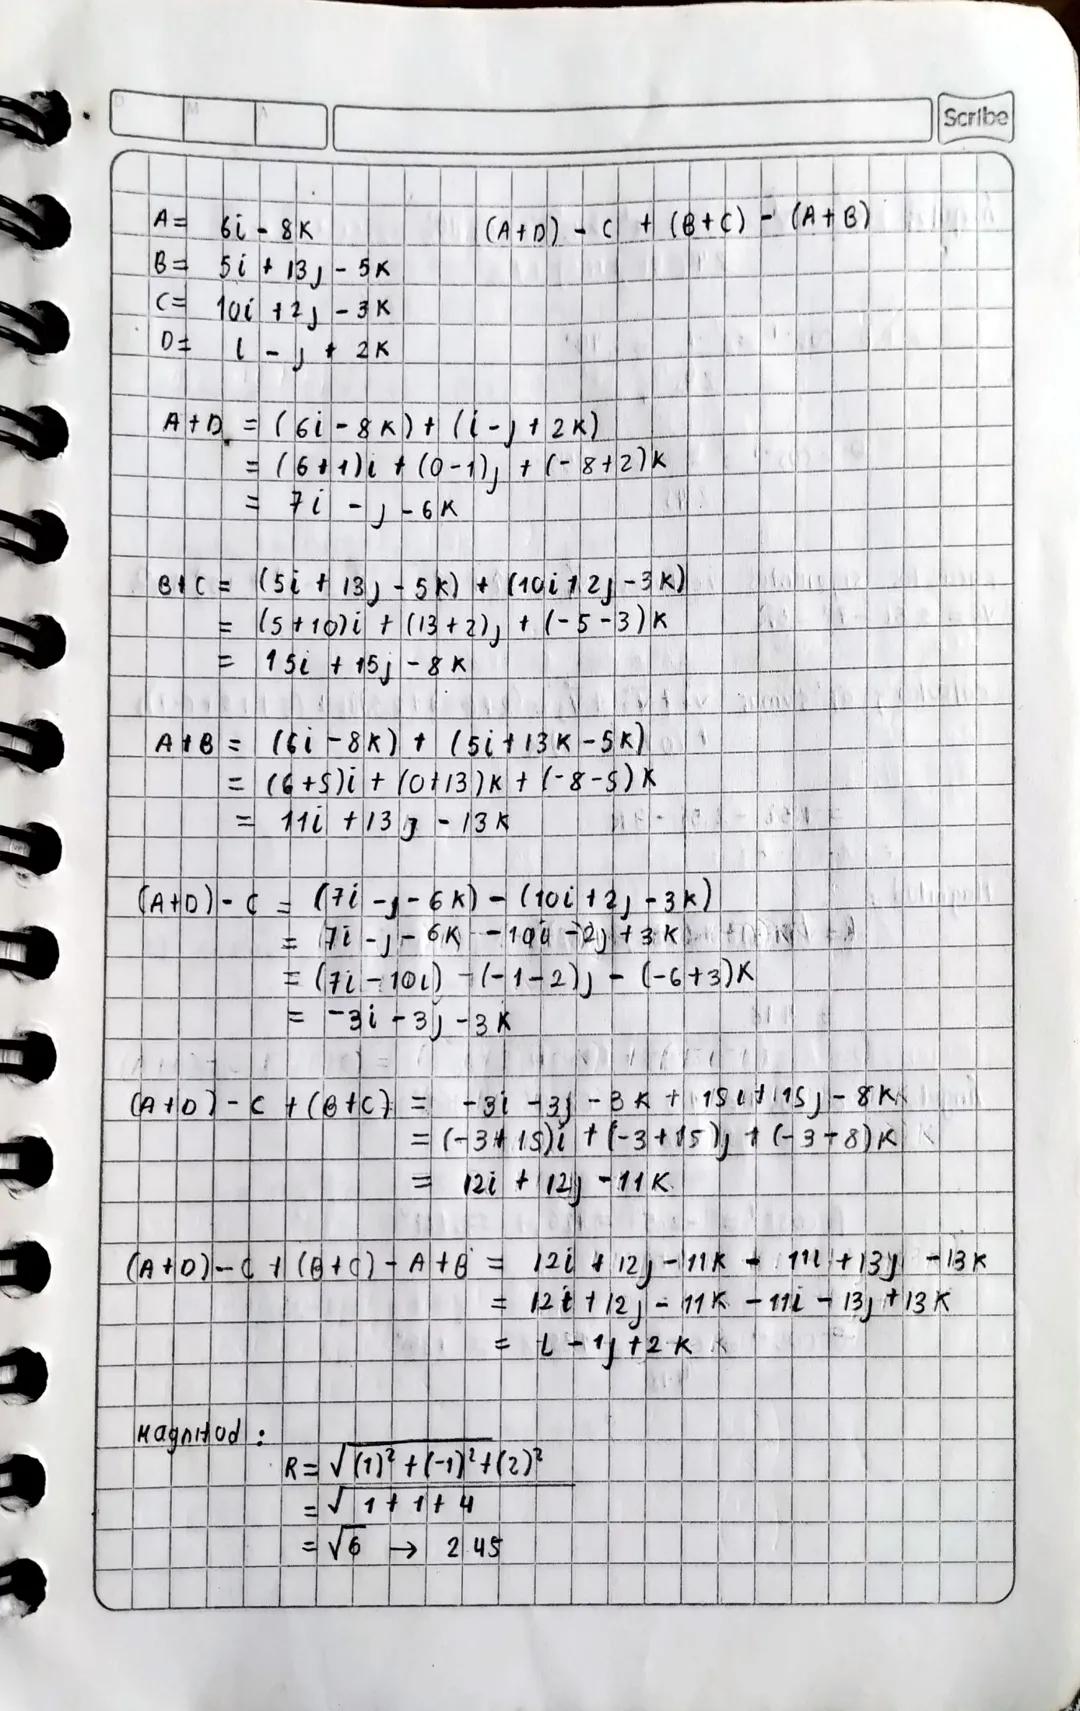 D M A
Scribe
A= 6i - 8k (A+D) - C + (B+C) - (A+B)
B= 5i + 13j - 5k
C= 10i + 2j - 3k
D= i - j + 2k
A+D = (6i - 8k) + (i - j + 2k)
= (6+1)i + (0-1)j + (-8+2)k
= 7i - j - 6k
B+C = (5i + 13j - 5k) + (10i + 2j - 3k)
= (5+10)i + (13+2)j + (-5-3)k
= 15i + 15j - 8k
A+B = (6i - 8k) + (5i + 13k - 5k)
= (6+5)i + (0+13)k + (-8-5)k
= 11i + 13j - 13k
(A+D) - C = (7i - j - 6k) - (10i + 2j - 3k)
= 7i - j - 6k - 10i - 2j + 3k
= (7i - 10i) - (-1-2)j - (-6+3)k
= -3i - 3j - 3k
(A+D) - C + (B+C) = -3i - 3j - 3k + 15i + 15j - 8k
= (-3+15)i + (-3+15)j + (-3-8)k
= 12i + 12j - 11k
(A+D) - C + (B+C) - A+B = 12i + 12j - 11k - 11i + 13j - 13k
= 12i + 12j - 11k - 11i - 13j + 13k
= i - 1j + 2k
Magnitud :
R = √(1)² + (-1)² + (2)²
= √1 + 1 + 4
= √6 → 2.45